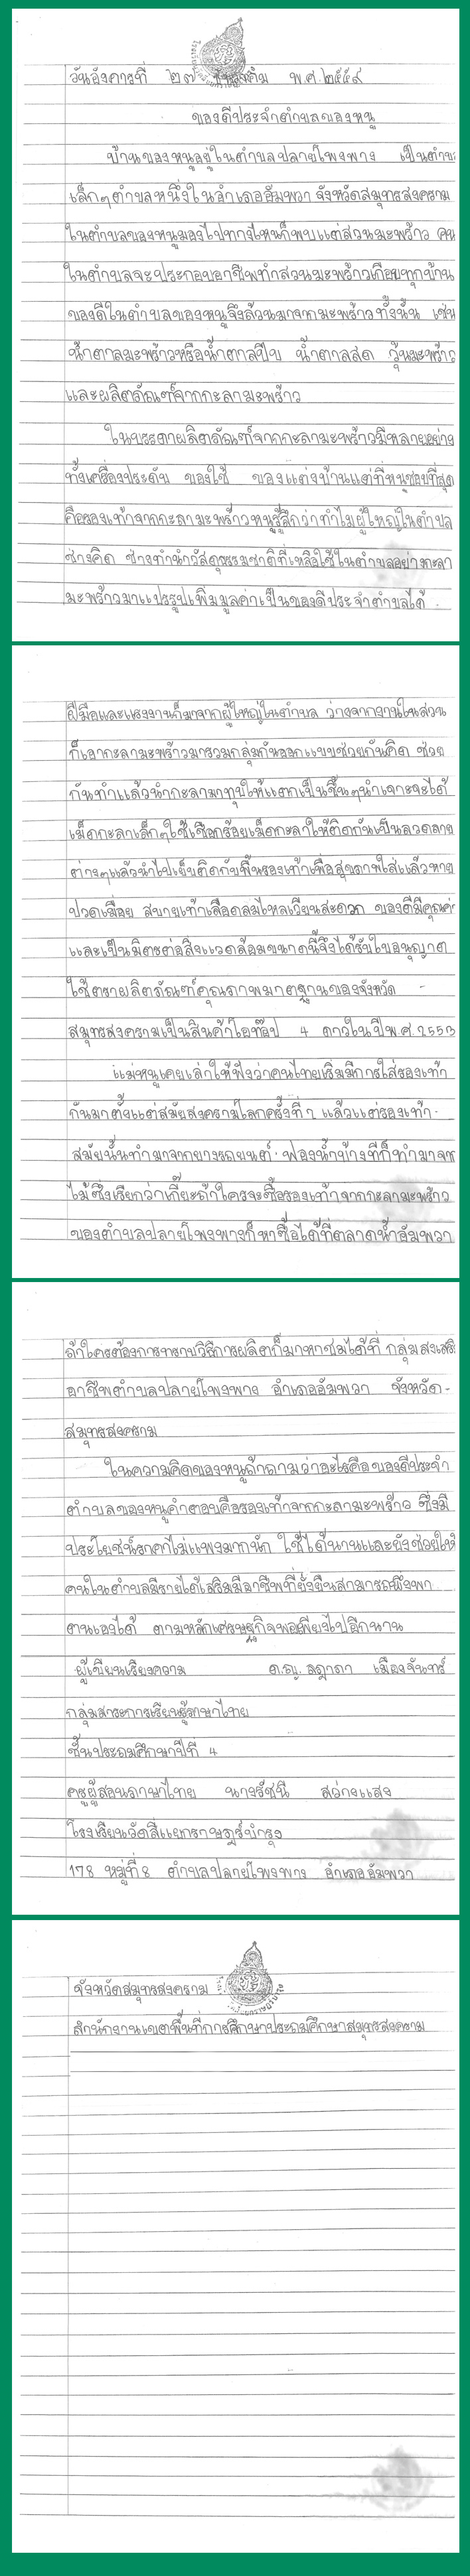 วันอังคารที่ ๒๗ ธันวาคม พ.ศ.๒๕๕๙
ของดีประจำตำบลของหนู
บ้านของหนูอยู่ในตำบลปลายโพงพาง เป็นตำบล
เล็กๆตำบลหนึ่งในอำเภออัมพวา จังหวัดสมุทรสงคราม
ในตำบลของหนูมองไปทางไหนก็พบแต่สวนมะพร้าว คน
ในตำบลจะประกอบอาชีพทำสวนมะพร้าวเกือบทุกบ้าน
ของดีในตำบลของหนูจึงล้วนมาจากมะพร้าวทั้งนั้น เช่น
น้ำตาลมะพร้าวหรือน้ำตาลปึบ น้ำตาลสด วุ้นมะพร้าว
และผลิตภัณฑ์จากกะลามะพร้าว
ในบรรดาผลิตภัณฑ์จากกะลามะพร้าวมีหลายอย่าง
ทั้งเครื่องประดับ ของใช้ ของแต่งบ้านแต่ที่หนูชอบที่สุด
คือรองเท้าจากกะลามะพร้าวหนูรู้สึกว่าทำไมผู้ใหญ่ในตำบล
ช่างคิด ช่างทำนำวัสดุธรรมชาติที่เหลือใช้ในตำบลอย่างกะลา
มะพร้าวมาแปรรูปเพิ่มมูลค่าเป็นของดีประจำตำบลได้
ฝีมือและแรงงานก็มาจากผู้ใหญ่ในตำบล ว่างจากงานในสวน
ก็เอากะลามะพร้าวมารวมกลุ่มกันออกแบบช่วยกันคิด ช่วย
กันทำแล้วนำกะลามาทุบให้แตกเป็นชิ้นๆนำเจาะจะได้
เม็ดกะลาเล็กๆใช้เชือกร้อยเม็ดกะลาให้ติดกันเป็นลวดลาย
ต่างๆแล้วนำไปเย็บติดกับพื้นรองเท้าเพื่อสุขภาพใส่แล้วหาย
ปวดเมื่อย สบายเท้าเลือดลมไหลเวียนสะดวก ของดีมีคุณค่า
และเป็นมิตรต่อสิ่งแวดล้อมขนาดนี้จึงได้รับใบอนุญาต
ใช้ตราผลิตภัณฑ์คุณภาพมาตฐานของจังหวัด -
สมุทรสงครามเป็นสินค้าโอท๊อป 4 ดาวในปีพ.ศ.2553
แม่หนูเคยเล่าให้ฟังว่าคนไทยเริ่มมีการใส่รองเท้า
กันมาตั้งแต่สมัยสงครามโลกครั้งที่๑ แล้วแต่รองเท้า-
สมัยนั้นทำมาจากยางรถยนต์ ฟองน้ำบ้างที่ก็ทำมาจาก
ไม้ซึ่งเรียกว่าเกี๊ยะถ้าใครจะซื้อรองเท้าจากกะลามะพร้าว
ของตำบลปลายโพงพางก็หาซื้อได้ที่ตลาดน้ำอัมพวา
ถ้าใครต้องการทราบวิธีการผลิตก็มาหาชมได้ที่ กลุ่มส่งเสริม
อาชีพตำบลปลายโพงพาง อำเภออัมพวา จังหวัด-
สมุทรสงคราม
ในความคิดของหนูถ้าถามว่าอะไรคือของดีประจำ
ตำบลของหนูคำตอบคือรองเท้าจากกะลามะพร้าว ซึ่งมี
ประโยชน์ราคาไม่แพงมากนัก ใช้ได้นานและยังช่วยให้
คนในตำบลมีรายได้เสริมมีอาชีพที่ยั่งยืนสามารถพึ่งพา
ตนเองได้ ตามหลักเศรษฐกิจพอเพียงไปอีกนาน
ผู้เขียนเรียงความ ด.ญ. ลฎาภา เมืองจันทร์
กลุ่มสาระการเรียนรู้ภาษาไทย
ชั้นประถมศึกษาปีที่ 4
ครูผู้สอนภาษาไทย นางรัชนี สว่างแสง
โรงเรียนวัดสี่แยกราษฎร์บำรุง
178 หมู่ที่ 8 ตำบลปลายโพงพาง อำเภออัมพวา
จังหวัดสมุทรสงคราม
สำนักงานเขตพื้นที่การศึกษาประถมศึกษาสมุทรสงคราม